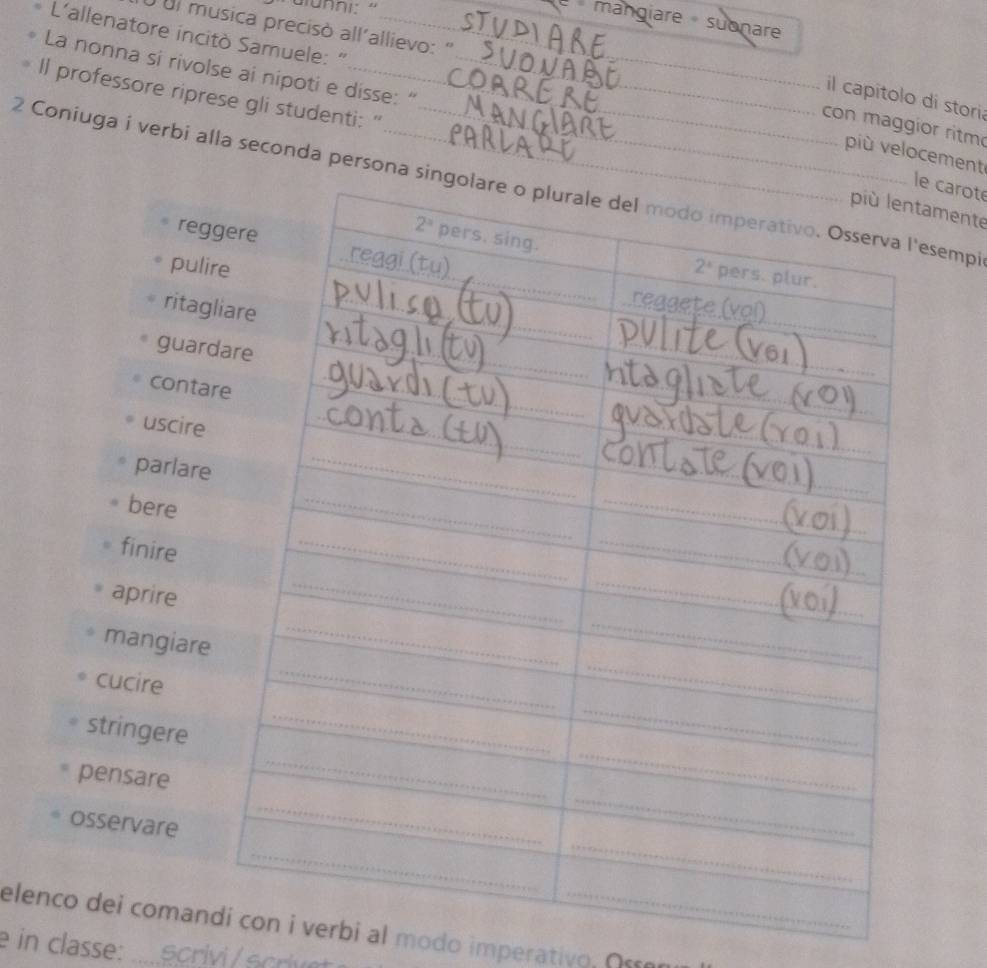 mangiare • suonare
alunni: "
STUDIARE il capitolo di storia
di musica precisò all'allievo: " SUONARE con maggior ritmo
• L'allenatore incitò Samuele: " CORRERE più velocemente
• La nonna si rivolse ai nipoti e disse: " MANGIARE le carote
• Il professore riprese gli studenti: " PARLARE più lentamente
2 Coniuga i verbi alla seconda persona singolare o plurale del modo imperativo. Osserva l'esempio
2ª pers. sing. 2ª pers. plur.
• reggere reggi (tu) reggete (voi)
• pulire pulisa (tu) pulite (voi)
• ritagliare ritagli (tu) ritagliate (voi)
• guardare guardi (tu) guardate (voi)
• contare conta (tu) contate (voi)
• uscire (voi)
• parlare (voi)
• bere (voi)
• finire
• aprire
• mangiare
• cucire
• stringere
• pensare
• osservare
elenco dei comandi con i verbi al modo imperativo.
e in classe: scrivi /